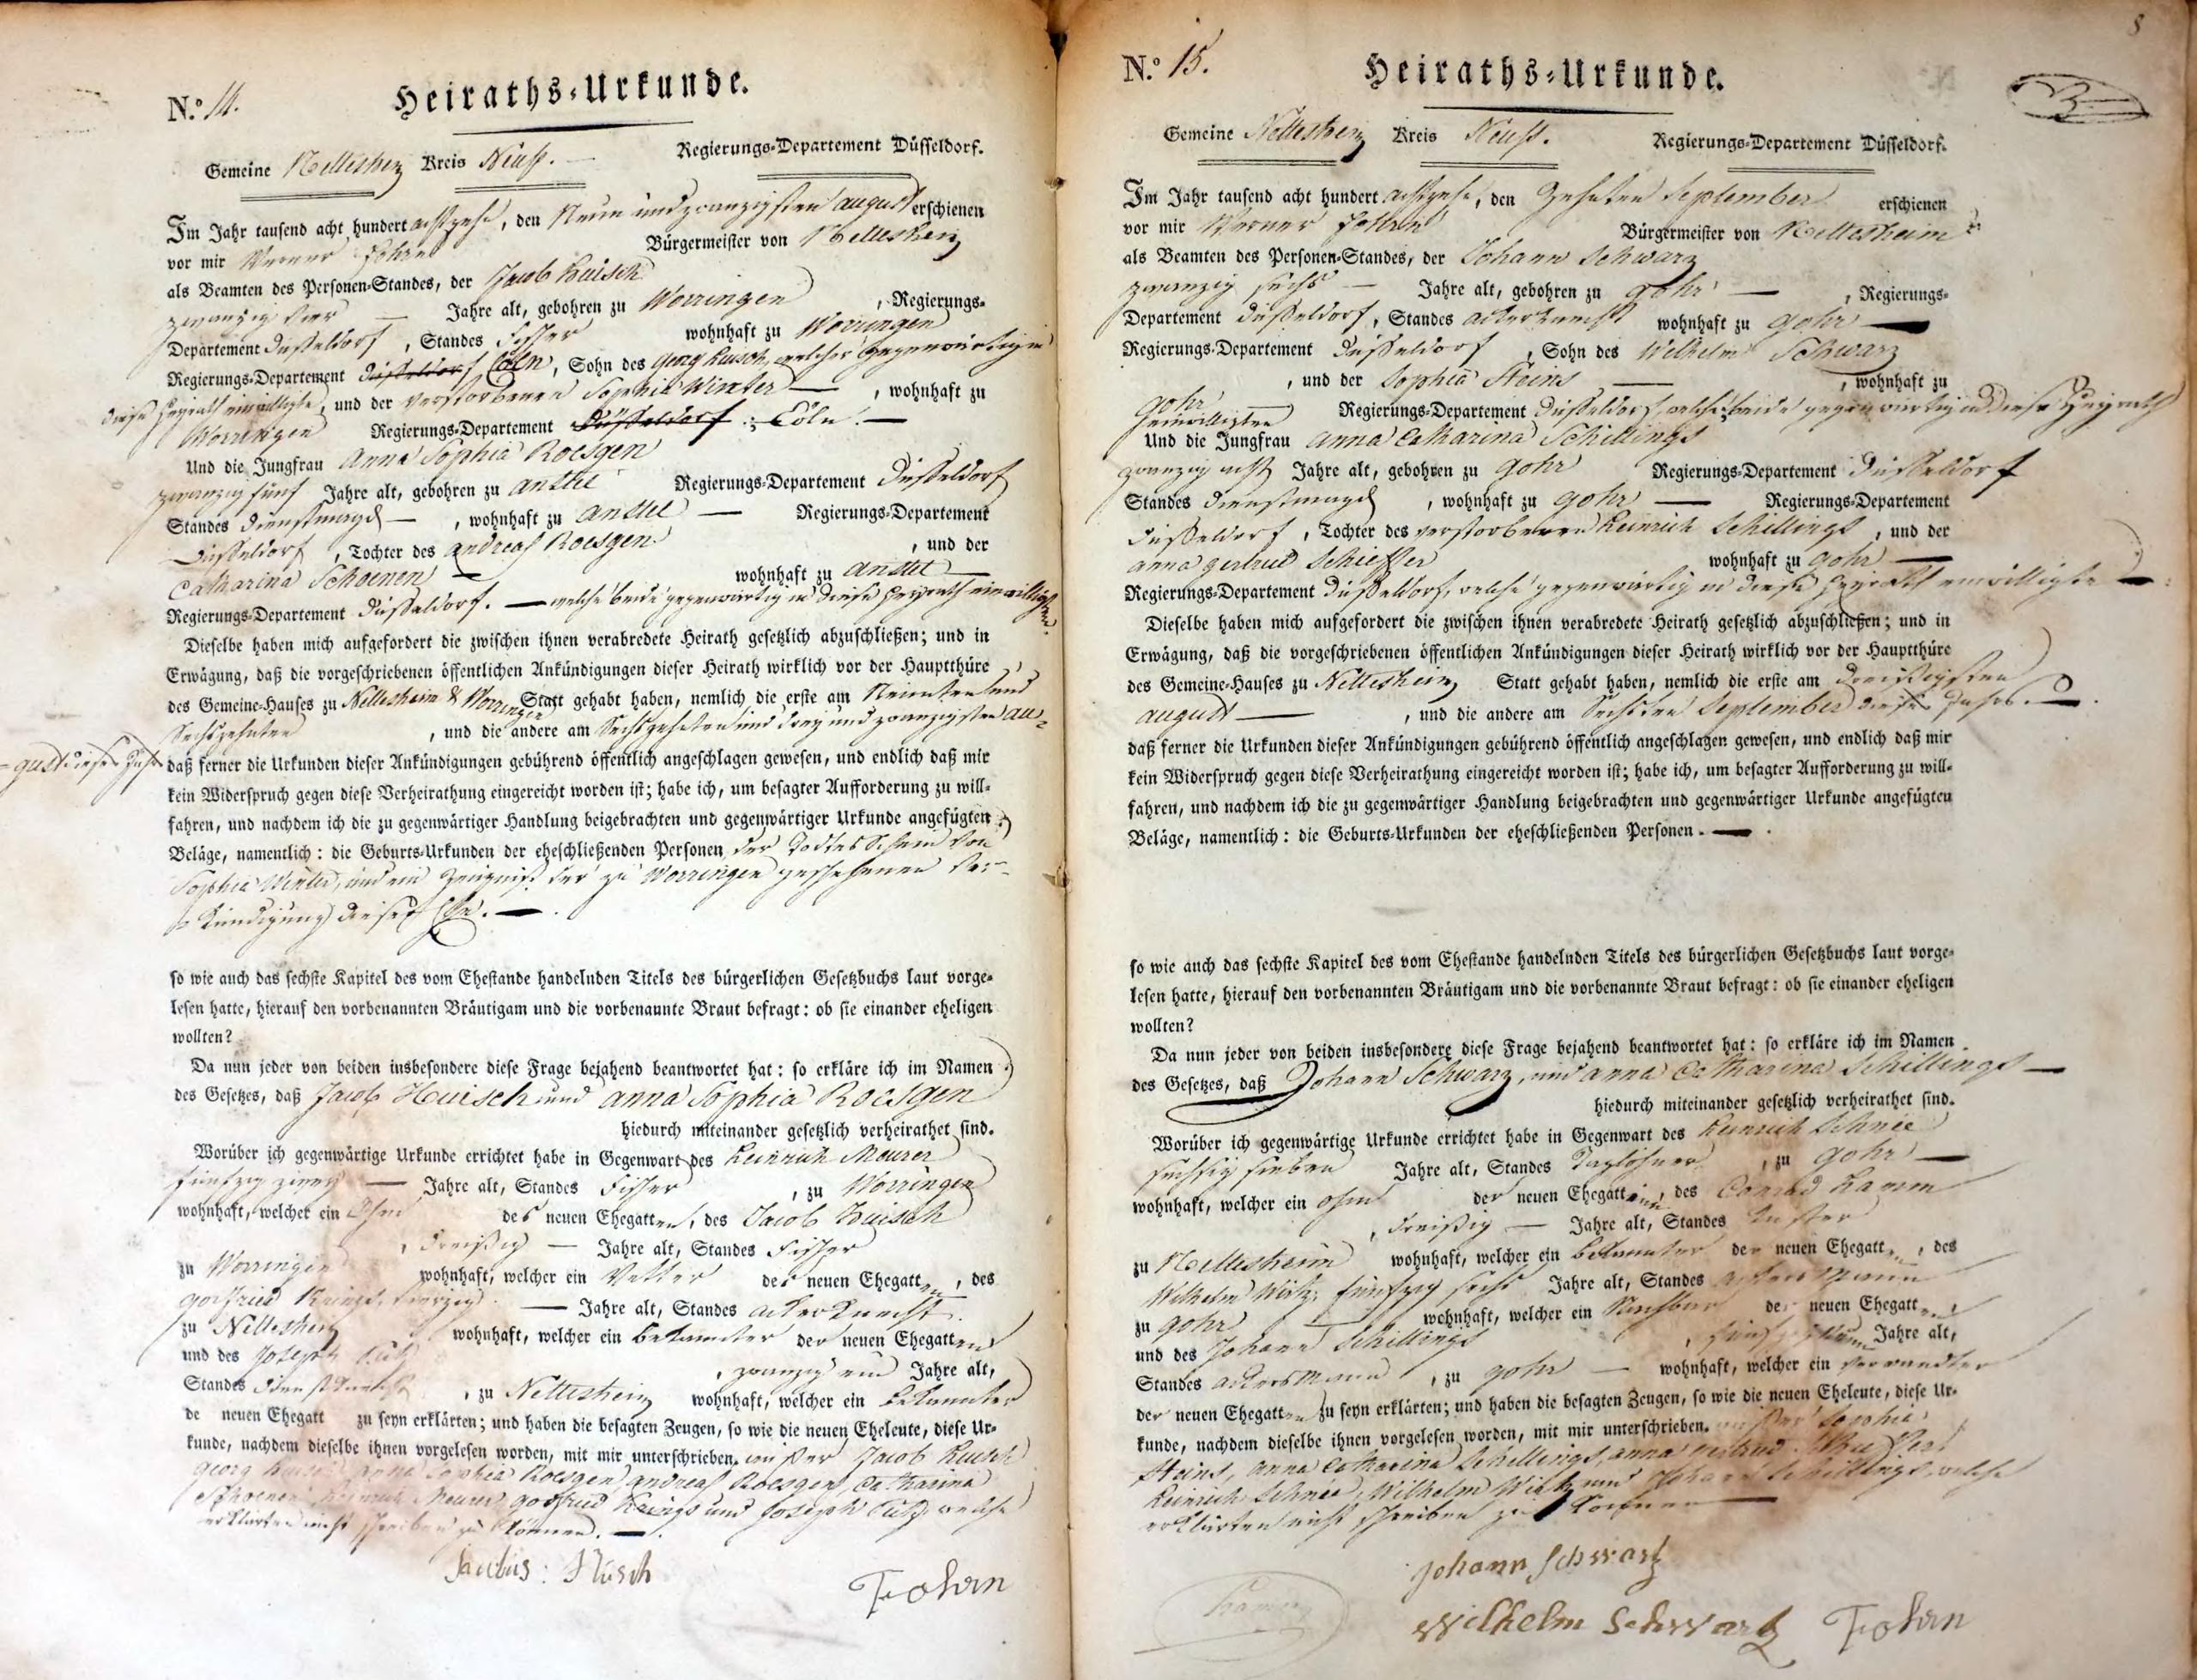 N.º 14.
Heiraths-Urkunde.
Gemeine Nettesheim Kreis Neuß. Regierungs-Departement Düsseldorf.
Im Jahr tausend acht hundert achtzehn, den Neun und zwanzigsten august erschienen
vor mir Werner Fohrn Bürgermeister von Nettesheim
als Beamten des Personen-Standes, der Jacob Huisch
zwanzig vier — Jahre alt, gebohren zu Worringen, Regierungs-
Departement Düsseldorf, Standes Fisser wohnhaft zu Worringen
Regierungs-Departement Düsseldorf Cöln, Sohn des Georg Huisch, welcher gegenwärtig in
diese Heyrath einwilligte, und der verstorbenen Sophie Winter —, wohnhaft zu
Worringen Regierungs-Departement Düsseldorf : Cöln. —
Und die Jungfrau Anna Sophia Roesgen
zwanzig fünf Jahre alt, gebohren zu anstel Regierungs-Departement Düsseldorf
Standes Dienstmagd —, wohnhaft zu anstel — Regierungs-Departement
Düsseldorf, Tochter des andreas Roesgen, und der
Catharina Schoenen — wohnhaft zu anstel —
Regierungs-Departement Düsseldorf. — welche beide gegenwärtig in diese Heyrath einwilligten.
Dieselbe haben mich aufgefordert die zwischen ihnen verabredete Heirath gesetzlich abzuschließen; und in
Erwägung, daß die vorgeschriebenen öffentlichen Ankündigungen dieser Heirath wirklich vor der Hauptthüre
des Gemeine-Hauses zu Nettesheim & Worringen Statt gehabt haben, nemlich die erste am Neunten und
Sechszehnten, und die andere am Sechszehnten und drey und zwanzigsten au-
-gust dieses Jahrs daß ferner die Urkunden dieser Ankündigungen gebührend öffentlich angeschlagen gewesen, und endlich daß mir
kein Widerspruch gegen diese Verheirathung eingereicht worden ist; habe ich, um besagter Aufforderung zu will-
fahren, und nachdem ich die zu gegenwärtiger Handlung beigebrachten und gegenwärtiger Urkunde angefügten
Beläge, namentlich: die Geburts-Urkunden der eheschließenden Personen, der Todtesschein von
Sophia Winter, und ein Zeugniß der zu Worringen geschehenen Ver-
kündigung dieser Ehe. —
so wie auch das sechste Kapitel des vom Ehestande handelnden Titels des bürgerlichen Gesetzbuchs laut vorge-
lesen hatte, hierauf den vorbenannten Bräutigam und die vorbenannte Braut befragt: ob sie einander eheligen
wollten?
Da nun jeder von beiden insbesondere diese Frage bejahend beantwortet hat: so erkläre ich im Namen
des Gesetzes, daß Jacob Huisch und anna Sophia Roesgen
hiedurch miteinander gesetzlich verheirathet sind.
Worüber ich gegenwärtige Urkunde errichtet habe in Gegenwart des Heinrich Meurer
fünfzig zwey — Jahre alt, Standes Fisser, zu Worringen
wohnhaft, welcher ein Ohm des neuen Ehegatten, des Jacob Huisch
, dreißig — Jahre alt, Standes Fisser
zu Worringen wohnhaft, welcher ein Vetter des neuen Ehegatten, des
Gottfried Krings, vierzig — Jahre alt, Standes ackerknecht
zu Nettesheim wohnhaft, welcher ein bekannter der neuen Ehegatten
und des Joseph, zwanzig ein Jahre alt,
Standes Dienstknecht, zu Nettesheim wohnhaft, welcher ein bekannter
de neuen Ehegatt zu seyn erklärten; und haben die besagten Zeugen, so wie die neuen Eheleute, diese Ur-
kunde, nachdem dieselbe ihnen vorgelesen worden, mit mir unterschrieben. außer Jacob Huisch
Georg Huisch anna Sophia Roesgen, andreas Roesgen, Catharina
Schoenen Heinrich Meurer, gottfried Krings und Joseph welche
erklärten nicht schreiben zu können. —
Jacobus: Hüsch
Fohrn
8
N.º 15.
Heiraths-Urkunde.
Gemeine Nettesheim Kreis Neuß. Regierungs-Departement Düsseldorf.
Im Jahr tausend acht hundert achtzehn, den Zehnten September erschienen
vor mir Werner Fohrn Bürgermeister von Nettesheim
als Beamten des Personen-Standes, der Johann Schwarz
zwanzig sechs — Jahre alt, gebohren zu Gohr —, Regierungs-
Departement Düsseldorf, Standes ackerknecht wohnhaft zu Gohr —
Regierungs-Departement Düsseldorf, Sohn des Wilhelm Schwarz
, und der Sophia Steins —, wohnhaft zu
Gohr Regierungs-Departement Düsseldorf, welche beide gegenwärtig in diese Heyrath
einwilligten
Und die Jungfrau Anna Catharina Schillings
zwanzig acht Jahre alt, gebohren zu Gohr Regierungs-Departement Düsseldorf
Standes Dienstmagd, wohnhaft zu Gohr — Regierungs-Departement
Düsseldorf, Tochter des verstorbenen Heinrich Schillings, und der
anna gertrud Schieffer wohnhaft zu Gohr —
Regierungs-Departement Düsseldorf, welche gegenwärtig in diese Heyrath einwilligte —
Dieselbe haben mich aufgefordert die zwischen ihnen verabredete Heirath gesetzlich abzuschließen; und in
Erwägung, daß die vorgeschriebenen öffentlichen Ankündigungen dieser Heirath wirklich vor der Hauptthüre
des Gemeine-Hauses zu Nettesheim Statt gehabt haben, nemlich die erste am dreißigsten
august —, und die andere am Sechsten September dieses Jahrs. —
daß ferner die Urkunden dieser Ankündigungen gebührend öffentlich angeschlagen gewesen, und endlich daß mir
kein Widerspruch gegen diese Verheirathung eingereicht worden ist; habe ich, um besagter Aufforderung zu will-
fahren, und nachdem ich die zu gegenwärtiger Handlung beigebrachten und gegenwärtiger Urkunde angefügten
Beläge, namentlich: die Geburts-Urkunden der eheschließenden Personen. —
so wie auch das sechste Kapitel des vom Ehestande handelnden Titels des bürgerlichen Gesetzbuchs laut vorge-
lesen hatte, hierauf den vorbenannten Bräutigam und die vorbenannte Braut befragt: ob sie einander eheligen
wollten?
Da nun jeder von beiden insbesondere diese Frage bejahend beantwortet hat: so erkläre ich im Namen
des Gesetzes, daß Johann Schwarz, und anna Catharina Schillings —
hiedurch miteinander gesetzlich verheirathet sind.
Worüber ich gegenwärtige Urkunde errichtet habe in Gegenwart des Heinrich Schnée
sechszig sieben Jahre alt, Standes Taglöhner, zu Gohr —
wohnhaft, welcher ein Ohm der neuen Ehegattinn, des Conrad Hamm
, dreißig — Jahre alt, Standes Küster
zu Nettesheim wohnhaft, welcher ein bekannter der neuen Ehegatten, des
Wilhelm Wirtz, fünfzig sechs Jahre alt, Standes Ackersmann
zu Gohr wohnhaft, welcher ein Nachbar der neuen Ehegatten,
und des Johann Schillings, Jahre alt,
Standes ackersmann, zu Gohr — wohnhaft, welcher ein verwandter
der neuen Ehegatten zu seyn erklärten; und haben die besagten Zeugen, so wie die neuen Eheleute, diese Ur-
kunde, nachdem dieselbe ihnen vorgelesen worden, mit mir unterschrieben. außer Sophia
Steins, Anna Catharina Schillings, anna gertrud Schieffer
Heinrich Schnée, Wilhelm Wirtz und Johann Schillings, welche
erklärten nicht schreiben zu können —
Johann Schwartz
Hamm
Wilhelm Schwartz Fohrn